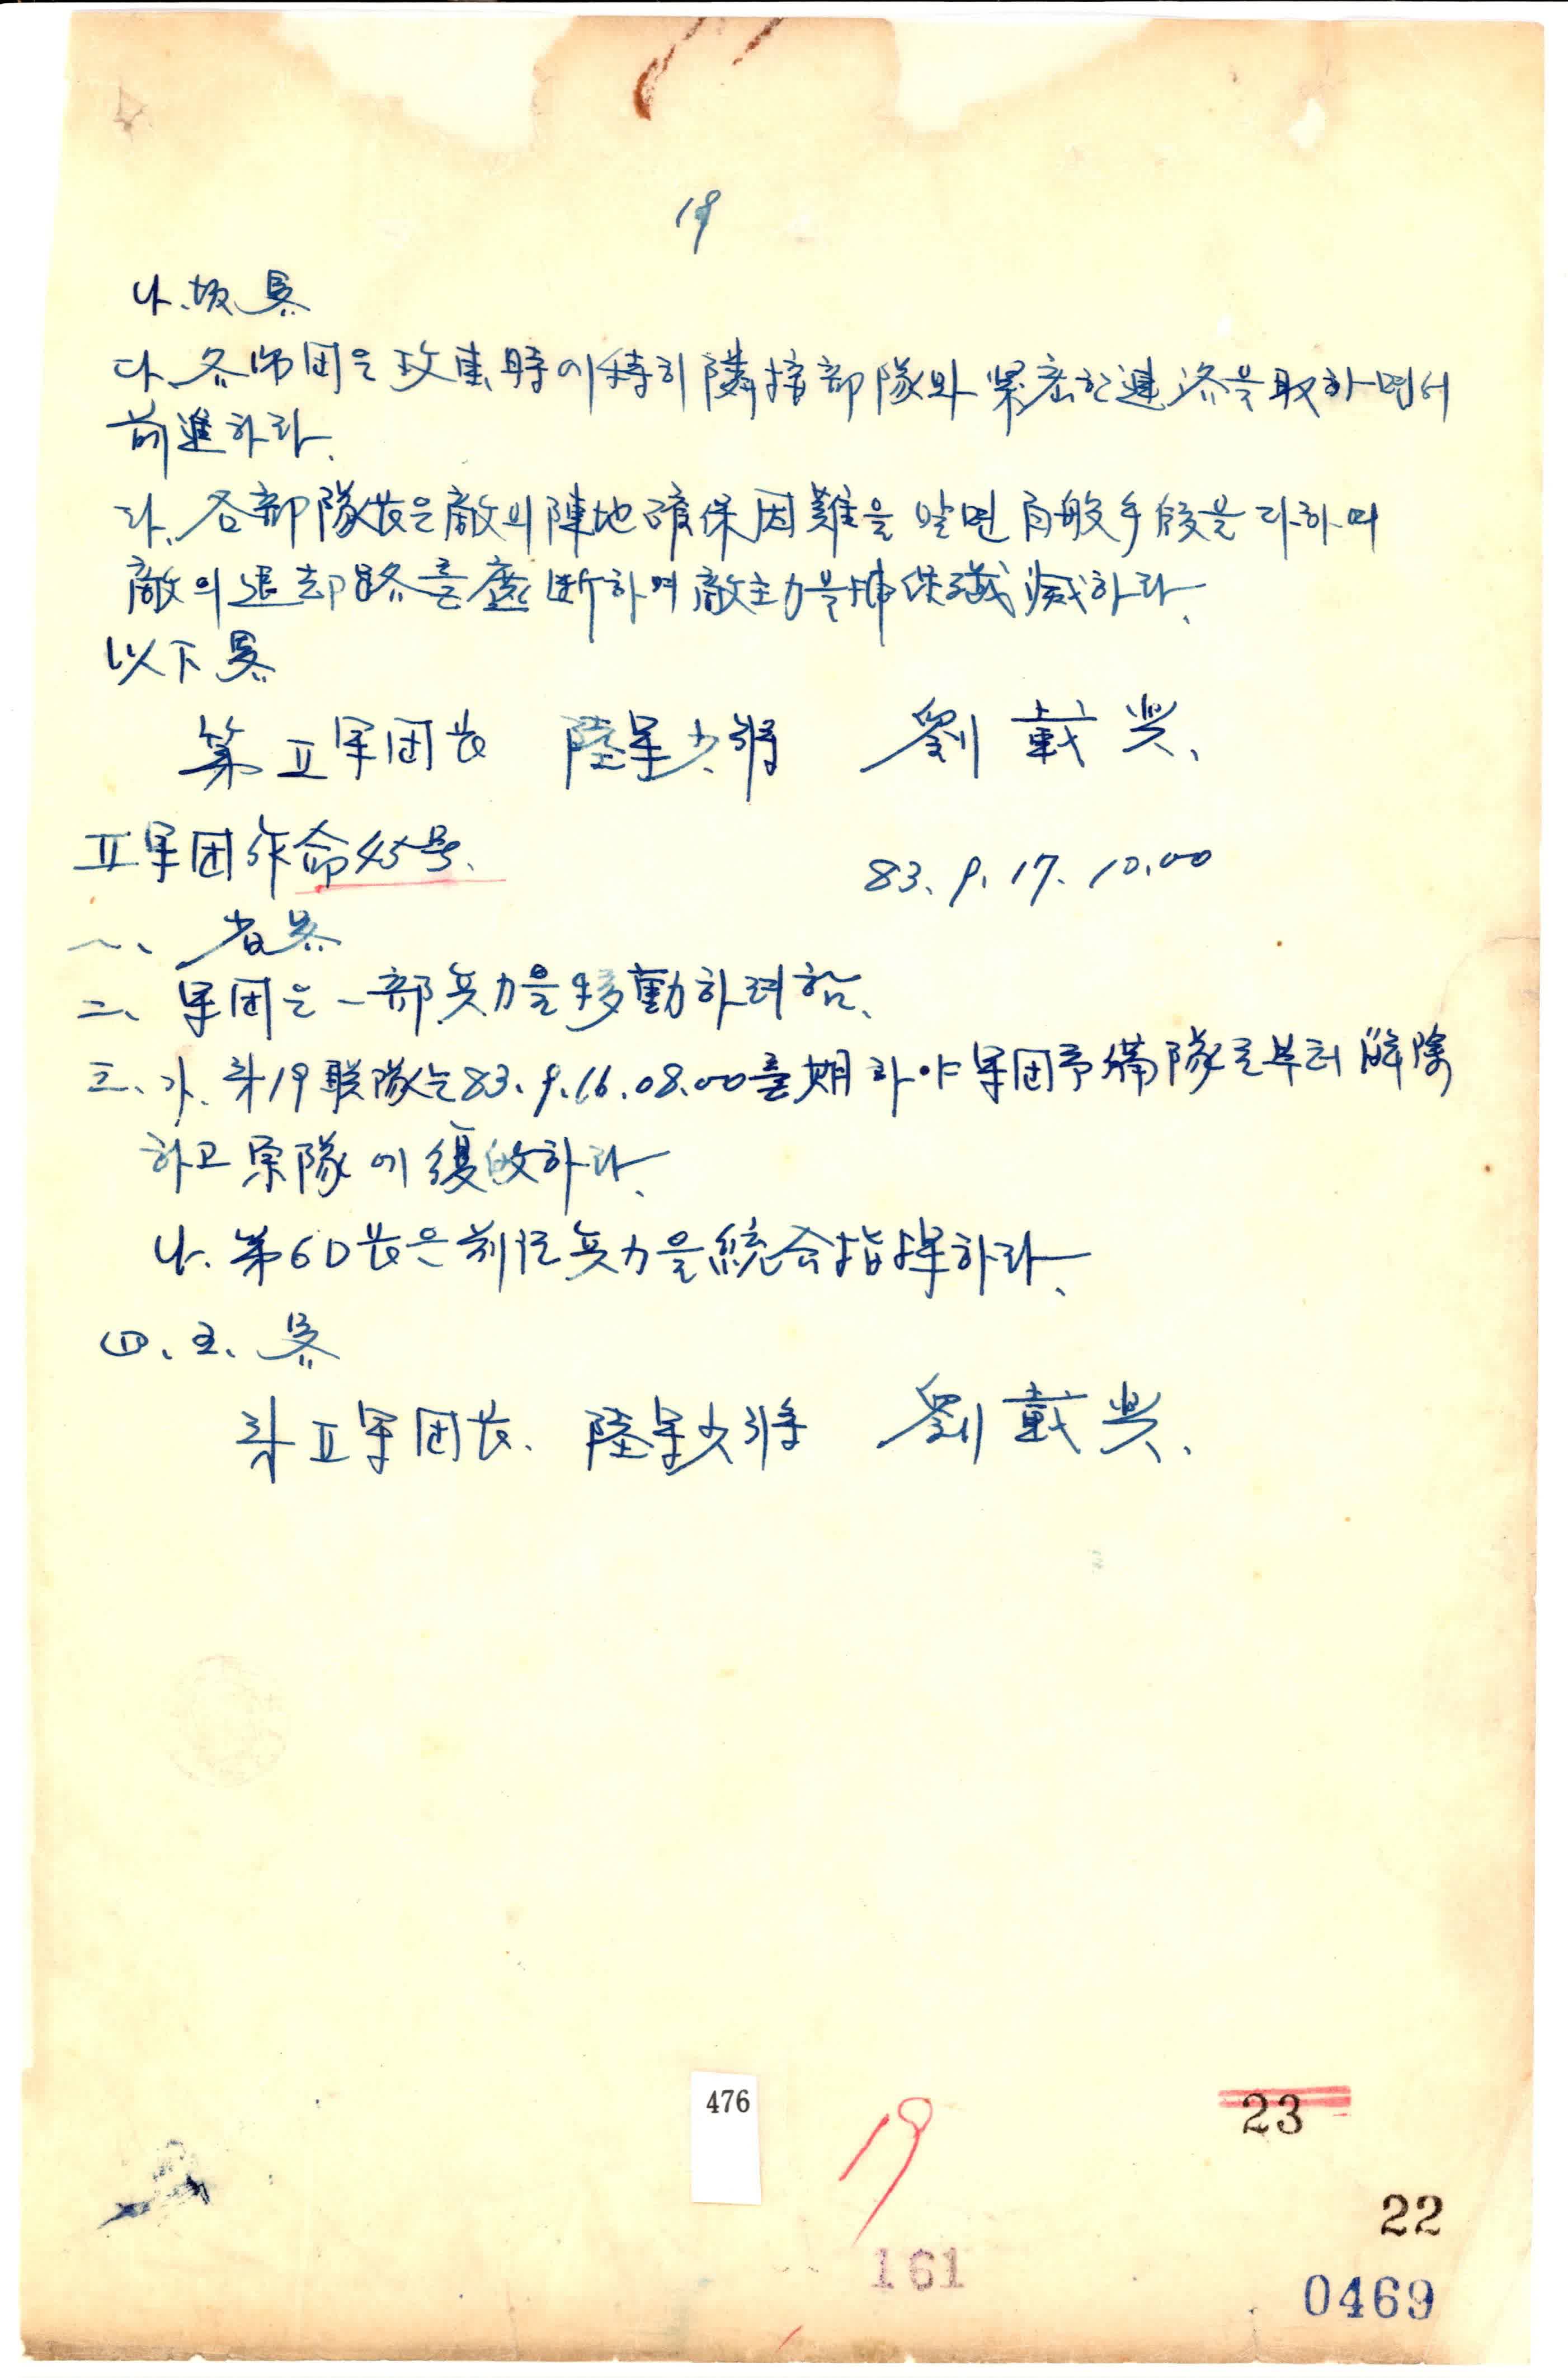 19
나. 叚畧
다. 各師団은 攻軍時에 特히 隣接部隊와 緊密한 連絡을 取하면서
前進하라.
라. 各部隊長은 敵의 陣地確保困難을 알면 百般手段을 다하며
敵의 退却路를 遮断하며 敵主力을 捕促殲滅하라.
以下畧
第Ⅱ军団长 陸军少将 劉載兴.
Ⅱ军团作命45号. 83. 9. 17. 10.00
一、省畧
二、军团은 一部兵力을 移動하려함.
三、가. 㐧19联隊는 83. 9. 16. 08.00를 期하야 军团予備隊로부터 解除
하고 原隊에 復敀하라.
나. 第6D长은 前任兵力을 統合指揮하라.
四. 五. 畧
㐧Ⅱ军团长. 陸军少将 劉載兴.
476
19
23
22
161
0469